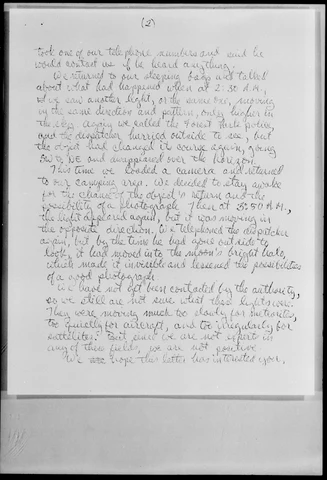 (2)
took one of our telephone numbers and said he
would contact us if he heard anything.
We returned to our sleeping bags and talked
about what had happened when at 2:30 A.M.,
we saw another light, or the same one, moving
in the same direction and pattern, only higher in
the sky. Again we called the Forest Park police,
and the dispatcher hurried outside to see, but
the object had changed its course again, going
SW to NE and disappeared over the horizon.
This time we loaded a camera and returned
to our camping area. We decided to stay awake
for the chance of the object's return and the
possibility of a photograph. Then at 3:50 A.M.,
the light appeared again, but it was moving in
the opposite direction. We telephoned the dispatcher
again, but, by the time he had gone outside to
look, it had moved into the moon's bright halo,
which made it invisible and lessened the possibilities
of a good photograph.
We have not yet been contacted by the authority,
so we still are not sure what these lights were.
They were moving much too slowly for meteorites,
too quietly for aircraft, and too irregularly for
satellites. But since we are not experts in
any of these fields, we are not positive.
We hope this letter has interested you,